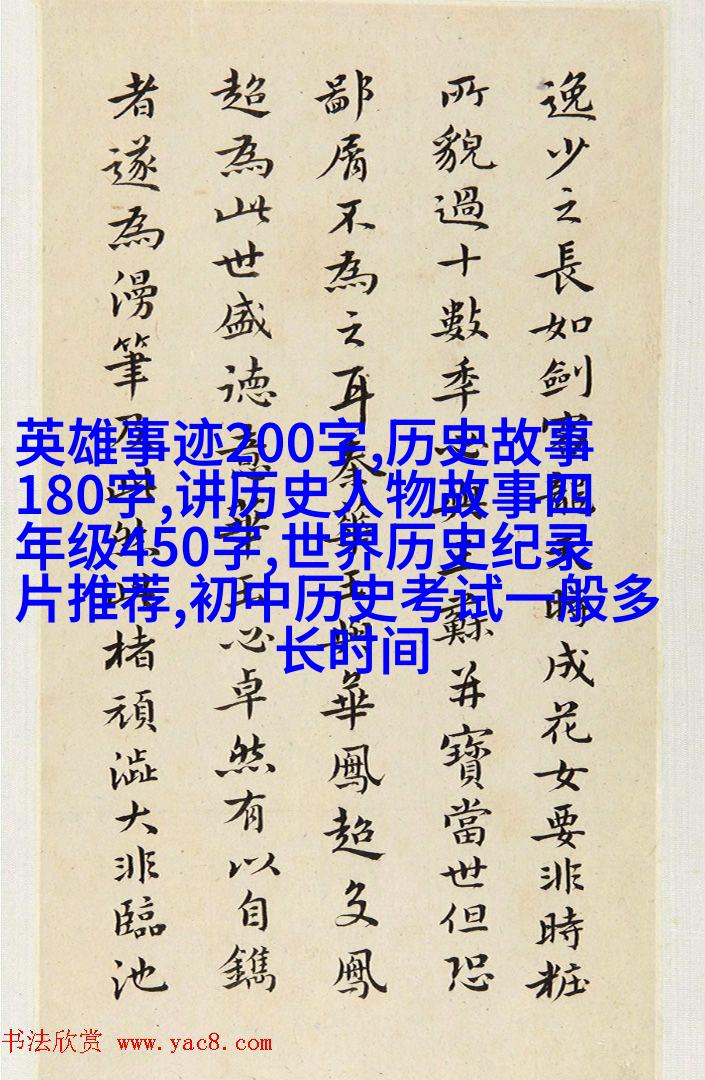 逸少之長如劍時成花女要非時粧
所貌過十數季蘇并寶當世但恐
鄙屑不為之耳華鳳超文鳳
超為此世盛德意華玉心卓然有以自鐫
者遂為漫筆楮頑澁大非臨池
英雄事迹200字,历史故事
180字,讲历史人物故事四
年级450字,世界历史纪录
片推荐,初中历史考试一般多
长时间
书法欣赏 www.yac8.com